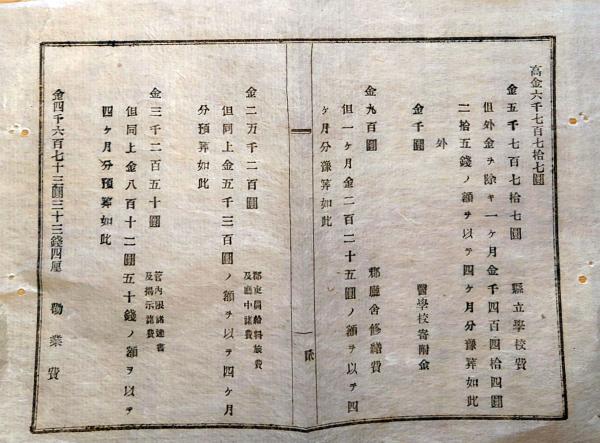 高金六千七百七拾七圓
金五千七百七拾七圓 縣立學校費
但外金ヲ除キ一ヶ月金千四百四拾四圓
二拾五錢ノ額ヲ以テ四ヶ月分豫算如此
外
金千圓 醫學校寄附金
金九百圓 郡廳舍修繕費
但一ヶ月金二百二十五圓ノ額ヲ以テ四
ヶ月分豫算如此
金二万千二百圓 郡吏員給料旅費
及廳中諸費
但同上金五千三百圓ノ額ヲ以テ四ヶ月
分預算如此
金三千二百五十圓 管内限諸達書
及揭示諸費
但同上金八百十二圓五十錢ノ額ヲ以テ
四ヶ月分預算如此
金四千六百七十三圓三十三錢四厘 勸業費